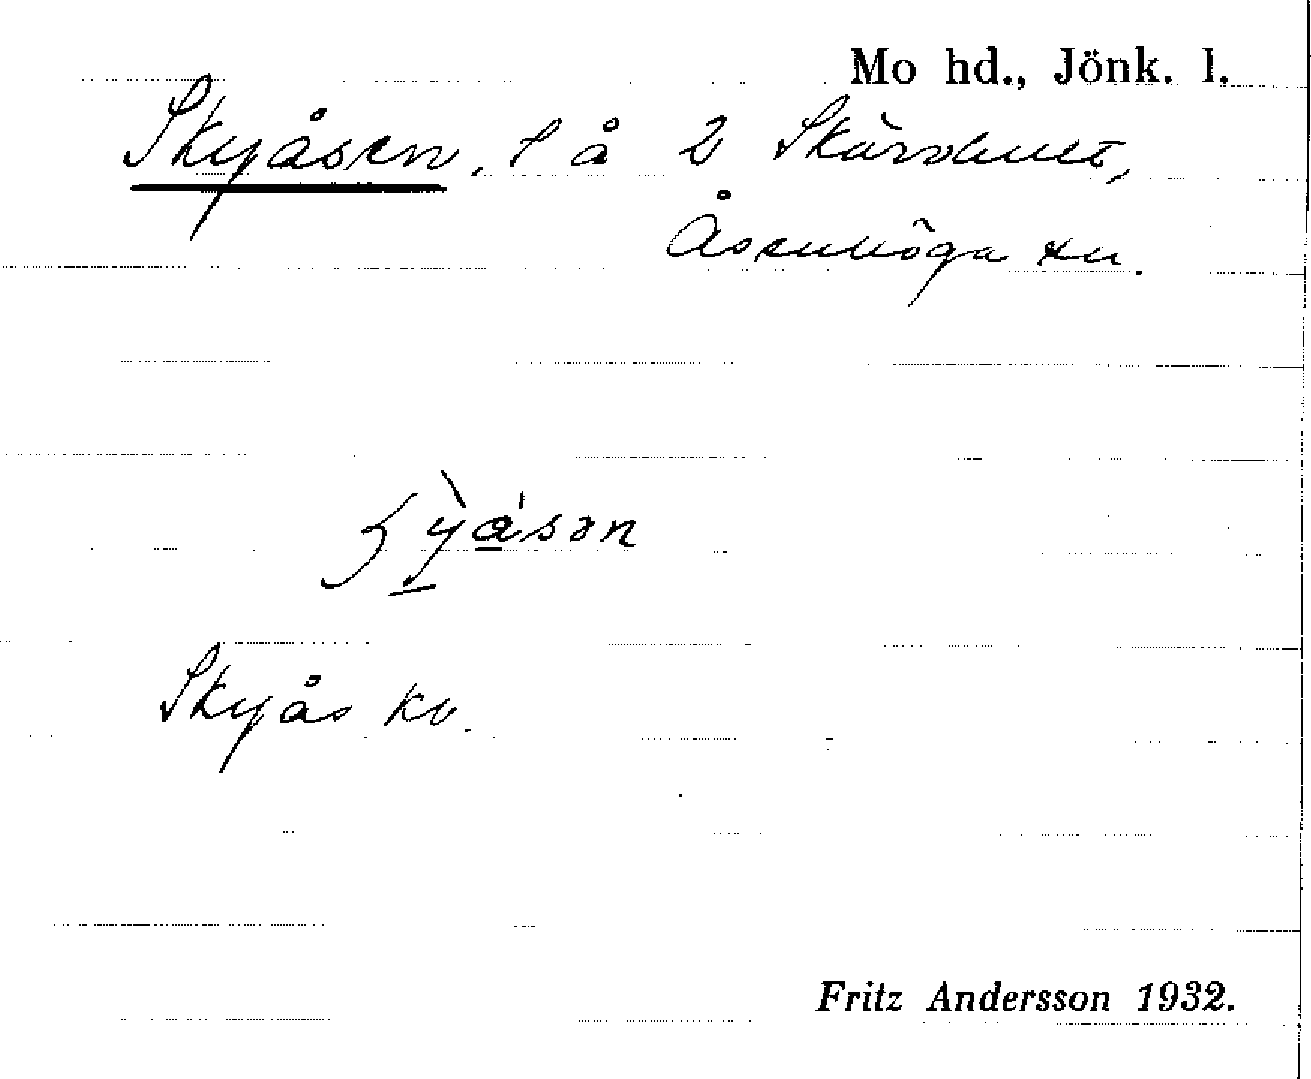 Mo hd., Jönk. l.
Skyåsen, l å 2 Skärvhult,
Åsenhöga sn.
ʃỳåsən
Skyås kv.
Fritz Andersson 1932.